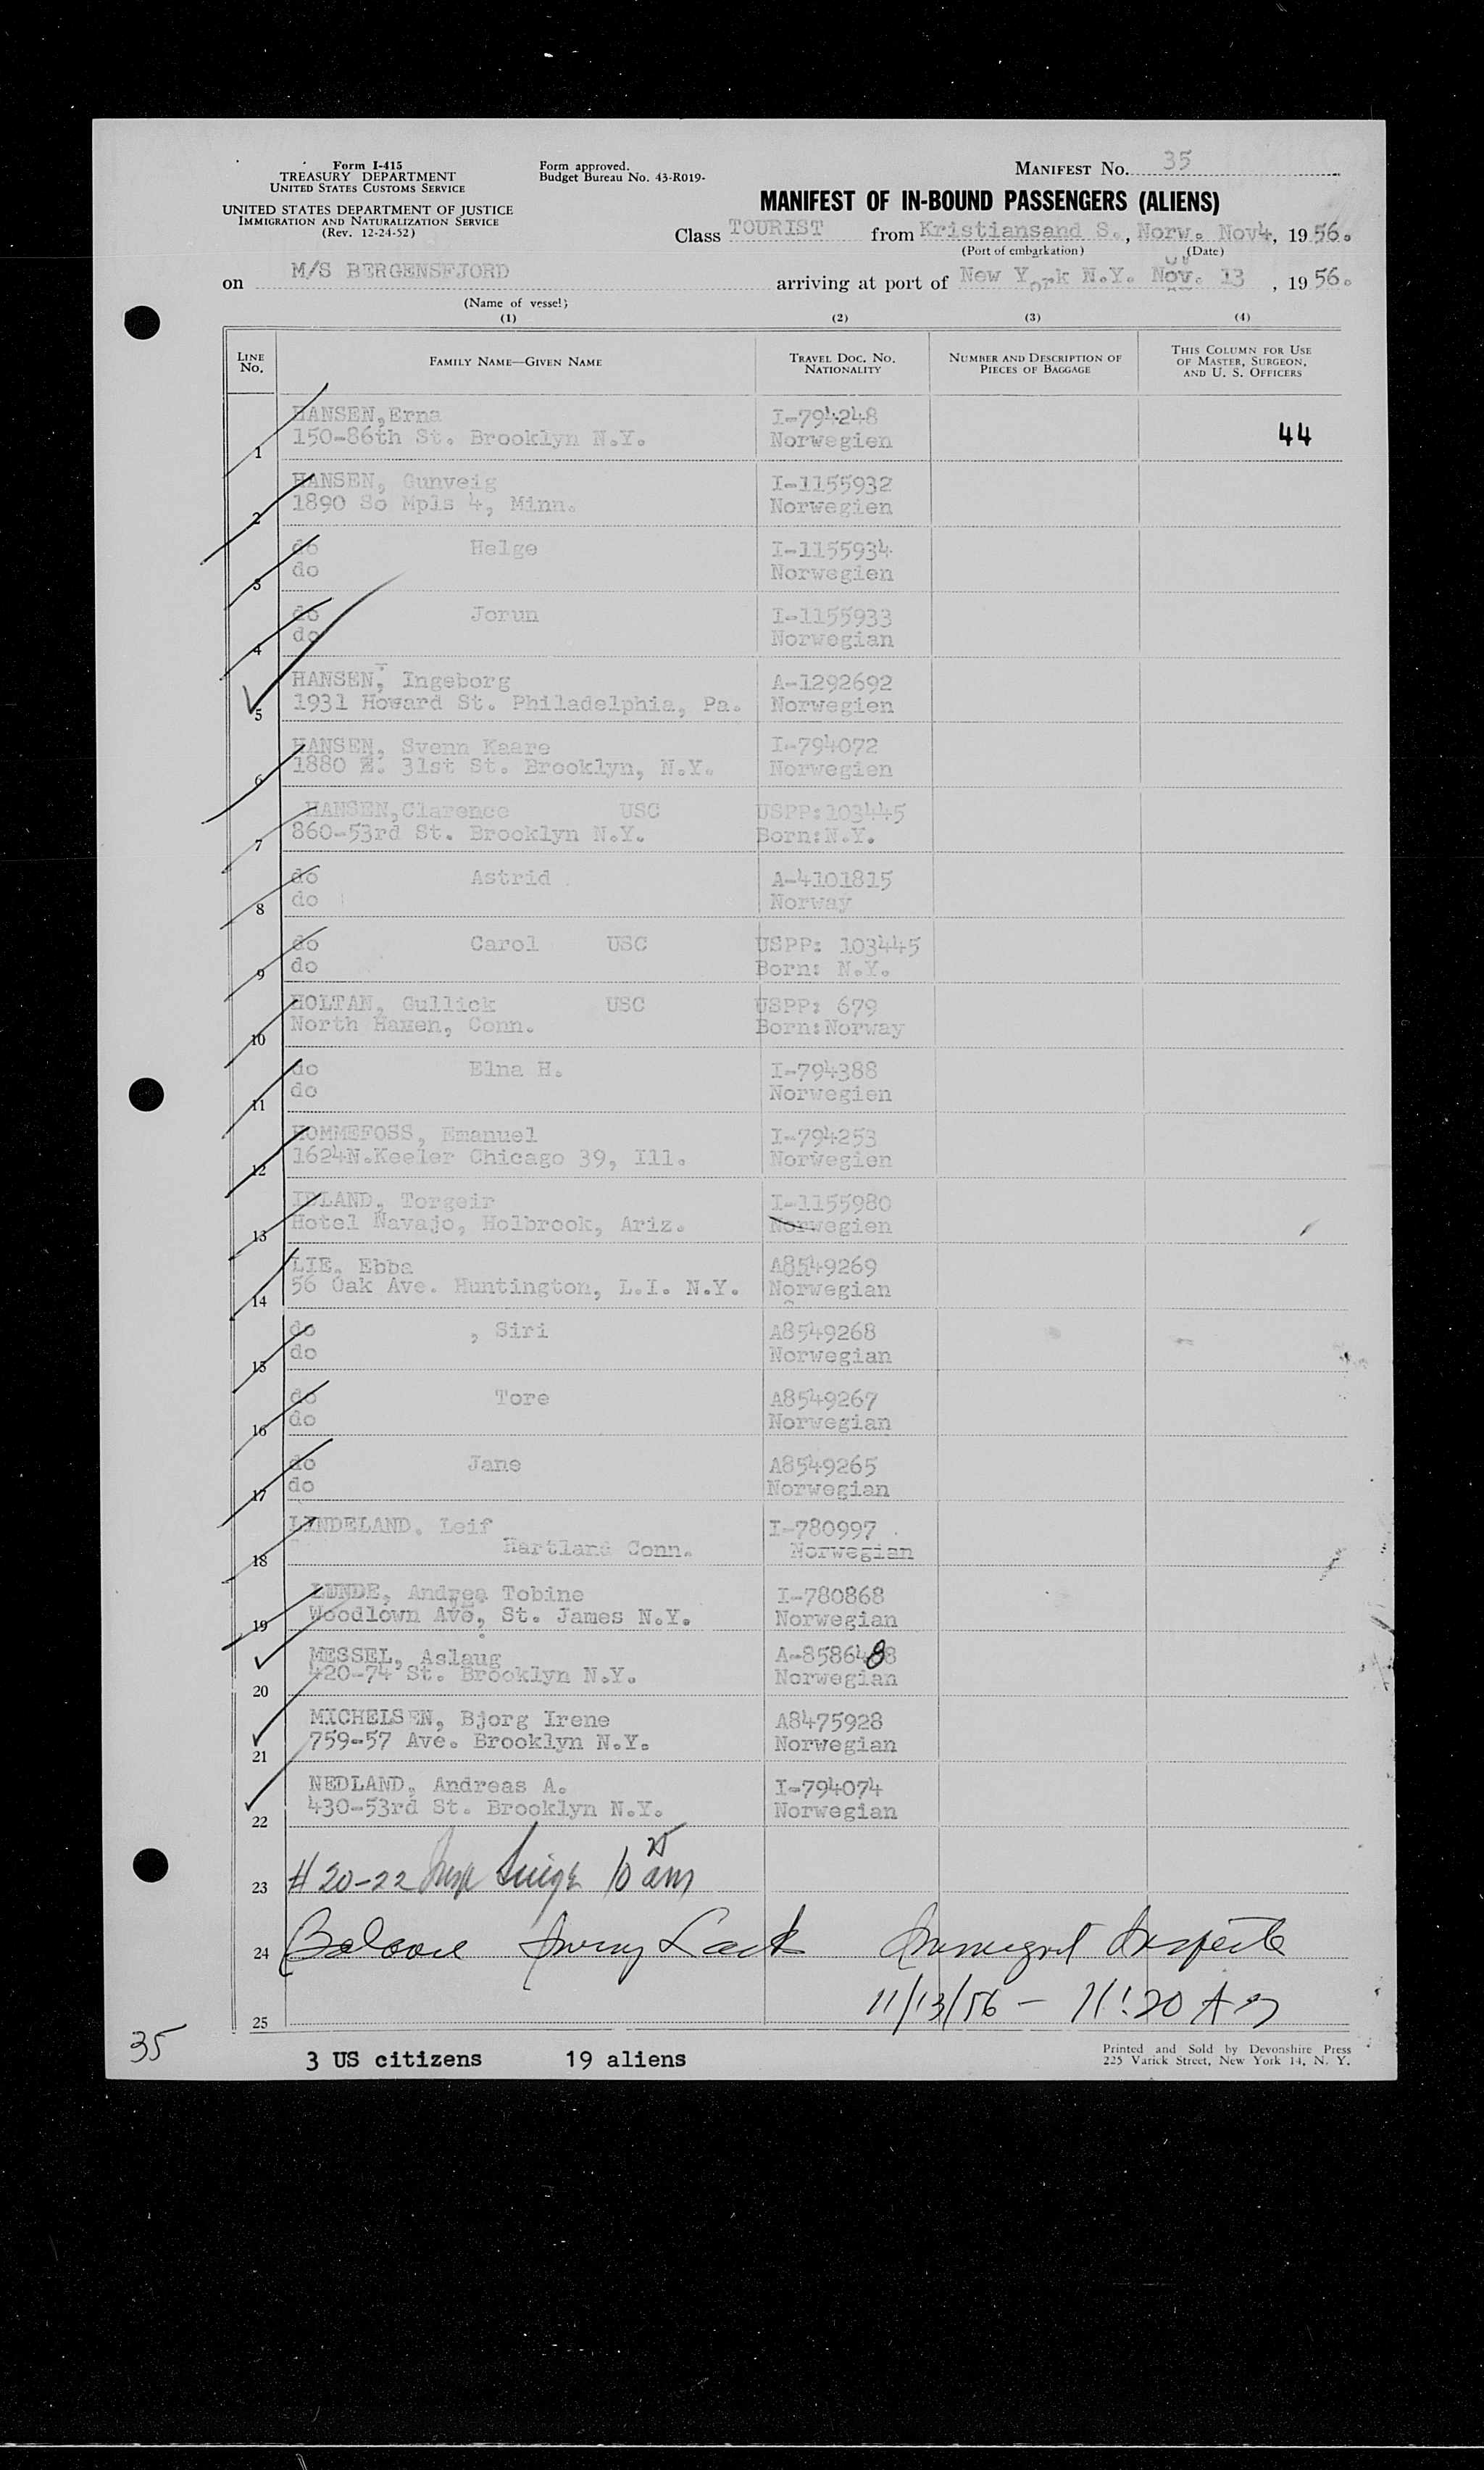 Form I-415
TREASURY DEPARTMENT
UNITED STATES CUSTOMS SERVICE
UNITED STATES DEPARTMENT OF JUSTICE
IMMIGRATION AND NATURALIZATION SERVICE
(Rev. 12-24-52)
Form approved.
Budget Bureau No. 43-R019-
MANIFEST No. 35
MANIFEST OF IN-BOUND PASSENGERS (ALIENS)
Class TOURIST from Kristiansand S., Norw. Nov4, 1956.
(Port of embarkation) (Date)
on M/S BERGENSFJORD arriving at port of New York N.Y. Nov. 13, 1956.
(Name of vessel)
(1) (2) (3) (4)
LINE No. FAMILY NAME—GIVEN NAME TRAVEL DOC. No. NATIONALITY NUMBER AND DESCRIPTION OF PIECES OF BAGGAGE THIS COLUMN FOR USE OF MASTER, SURGEON, AND U. S. OFFICERS
HANSEN,Erna I-794248
1 150-86th St. Brooklyn N.Y. Norwegien 44
HANSEN, Gunveig I-1155932
2 1890 So Mpls 4, Minn. Norwegien
do Helge I-1155934
3 do Norwegien
do Jorun I-1155933
4 do Norwegian
HANSEN, Ingeborg A-1292692
5 1931 Howard St. Philadelphia, Pa. Norwegien
HANSEN, Svenn Kaare I-794072
6 1880 E. 31st St. Brooklyn, N.Y. Norwegien
HANSEN,Clarence USC USPP:103445
7 860-53rd St. Brooklyn N.Y. Born:N.Y.
do Astrid A-4101815
8 do Norway
do Carol USC USPP: 103445
9 do Born: N.Y.
HOLTAN, Gullick USC USPP: 679
10 North Haxen, Conn. Born:Norway
do Elna H. I-794388
11 do Norwegien
HOMMEFOSS, Emanuel I-794253
12 1624N.Keeler Chicago 39, Ill. Norwegien
IDLAND, Torgeir I-1155980
13 Hotel Navajo, Holbrook, Ariz. Norwegien
LIE, Ebba A8549269
14 56 Oak Ave. Huntington, L.I. N.Y. Norwegian
do , Siri A8549268
15 do Norwegian
do Tore A8549267
16 do Norwegian
do Jane A8549265
17 do Norwegian
LINDELAND, Leif I-780997
18 Hartland Conn. Norwegian
LUNDE, Andrea Tobine I-780868
19 Woodlown Ave, St. James N.Y. Norwegian
MESSEL, Aslaug A-8586488
20 420-74 St. Brooklyn N.Y. Norwegian
MICHELSEN, Bjorg Irene A8475928
21 759-57 Ave. Brooklyn N.Y. Norwegian
NEDLAND, Andreas A. I-794074
22 430-53rd St. Brooklyn N.Y. Norwegian
23 # 20-22 10 25 am
24 Balance
25 11/13/56 - 11:20 AM
35
3 US citizens 19 aliens
Printed and Sold by Devonshire Press
225 Varick Street, New York 14, N. Y.